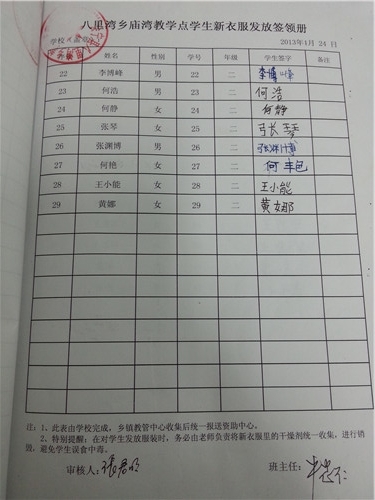 八里湾乡庙湾教学点学生新衣服发放签领册
学校
2013年1月 24 日
姓名 性别 学号 年级 学生签字 备注
22 李博峰 男 22 二 李博峰
23 何浩 男 23 二 何浩
24 何静 女 24 二 何静
25 张琴 女 25 二 张琴
26 张渊博 男 26 二 张渊博
27 何艳 女 27 二 何艳
28 王小能 女 28 二 王小能
29 黄娜 女 29 二 黄娜
注：1、此表由学校完成，乡镇教管中心收集后统一报送资助中心。
2、特别提醒：在对学生发放服装时，务必由老师负责将新衣服里的干燥剂统一收集，进行销
毁，避免学生误食中毒。
审核人： 班主任：